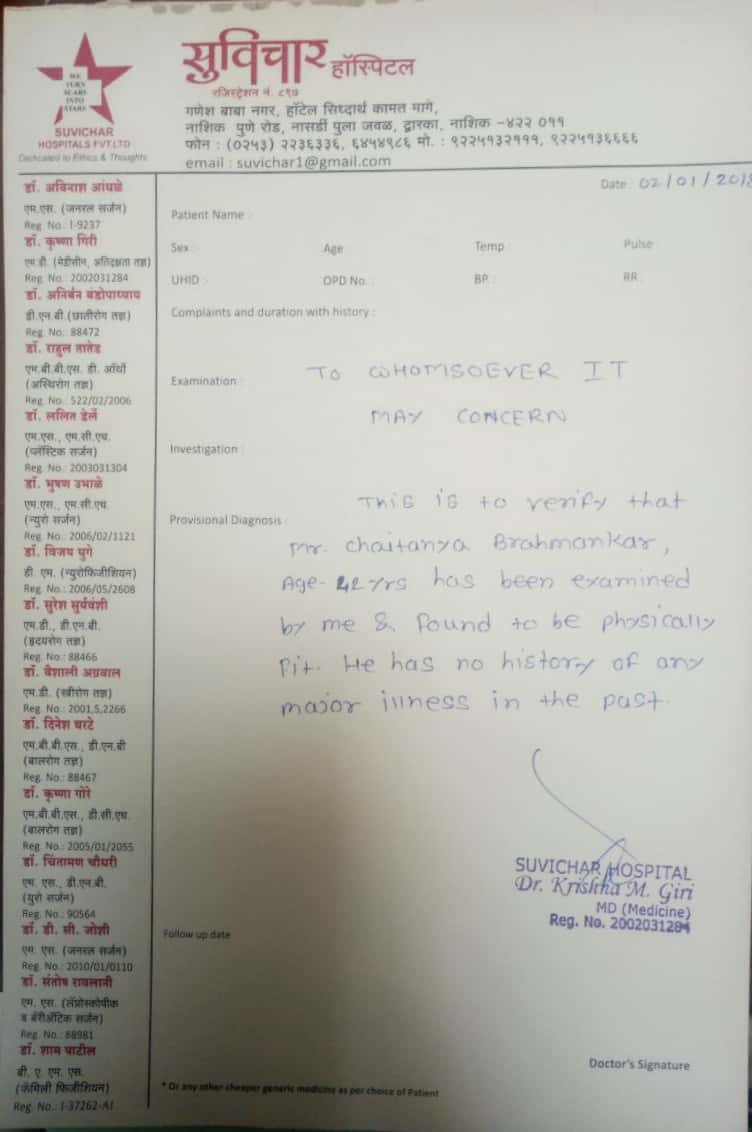 WE
TURN
SCARS
INTO
STARS
SUVICHAR
HOSPITALS PVT.LTD
Dedicated to Ethics & Thoughts
सुविचार हॉस्पिटल
रजिस्ट्रेशन नं. ८९७
गणेश बाबा नगर, हॉटेल सिध्दार्थ कामत मागे,
नाशिक पुणे रोड, नासर्डी पुला जवळ, द्वारका, नाशिक -४२२ ०११
फोन : (०२५३) २२३६३३६, ६४५४९८६ मो. : ९२२५१३२१११, ९२२५१३६६६६
email : suvichar1@gmail.com
डॉ. अविनाश आंधळे
एम.एस. (जनरल सर्जन)
Reg. No.: I-9237
डॉ. कृष्णा गिरी
एम.डी. (मेडीसीन, अतिदक्षता तज्ञ)
Reg. No.: 2002031284
डॉ. अनिर्बन बंडोपाध्याय
डी.एन.बी.(छातीरोग तज्ञ)
Reg. No.: 88472
डॉ. राहुल तातेड
एम.बी.बी.एस. डी. ऑर्थो
(अस्थिरोग तज्ञ)
Reg. No.: 522/02/2006
डॉ. ललित डेर्ले
एम.एस., एम.सी.एच.
(प्लॅस्टिक सर्जन)
Reg. No.: 2003031304
डॉ. भुषण उभाळे
एम.एस., एम.सी.एच.
(न्युरो सर्जन)
Reg. No.: 2006/02/1121
डॉ. विजय घुगे
डी. एम. (न्युरोफिजीशियन)
Reg. No.: 2006/05/2608
डॉ. सुरेश सुर्यवंशी
एम.डी., डी.एन.बी.
(हृदयरोग तज्ञ)
Reg. No.: 88466
डॉ. वैशाली अग्रवाल
एम.डी. (स्त्रीरोग तज्ञ)
Reg. No.: 2001,5,2266
डॉ. दिनेश घरटे
एम.बी.बी.एस., डी.एन.बी
(बालरोग तज्ञ)
Reg. No.: 88467
डॉ. कृष्णा गोरे
एम.बी.बी.एस., डी.सी.एच.
(बालरोग तज्ञ)
Reg. No.: 2005/01/2055
डॉ. चिंतामण चौधरी
एम. एस., डी.एन.बी.
(युरो सर्जन)
Reg. No.: 90564
डॉ. डी. सी. जोशी
एम. एस. (जनरल सर्जन)
Reg. No.: 2010/01/0110
डॉ. संतोष रावलानी
एम. एस. (लॅप्रोस्कोपीक
व बॅरीअॅटिक सर्जन)
Reg. No.: 88981
डॉ. शाम पाटील
बी. ए. एम. एस.
(फॅमिली फिजीशियन)
Reg. No.: I-37262-A1
Date : 02/01/2018
Patient Name :
Sex : Age Temp Pulse :
UHID : OPD No. : BP : RR :
Complaints and duration with history :
Examination : TO WHOMSOEVER IT
MAY CONCERN
Investigation :
This is to verify that
Provisional Diagnosis :
Mr. Chaitanya Brahmankar,
Age- 42 yrs has been examined
by me & found to be physically
fit. He has no history of any
major illness in the past.
SUVICHAR HOSPITAL
Dr. Krishna M. Giri
MD (Medicine)
Reg. No. 2002031284
Follow up date
Doctor's Signature
* Or any other cheaper generic medicine as per choice of Patient